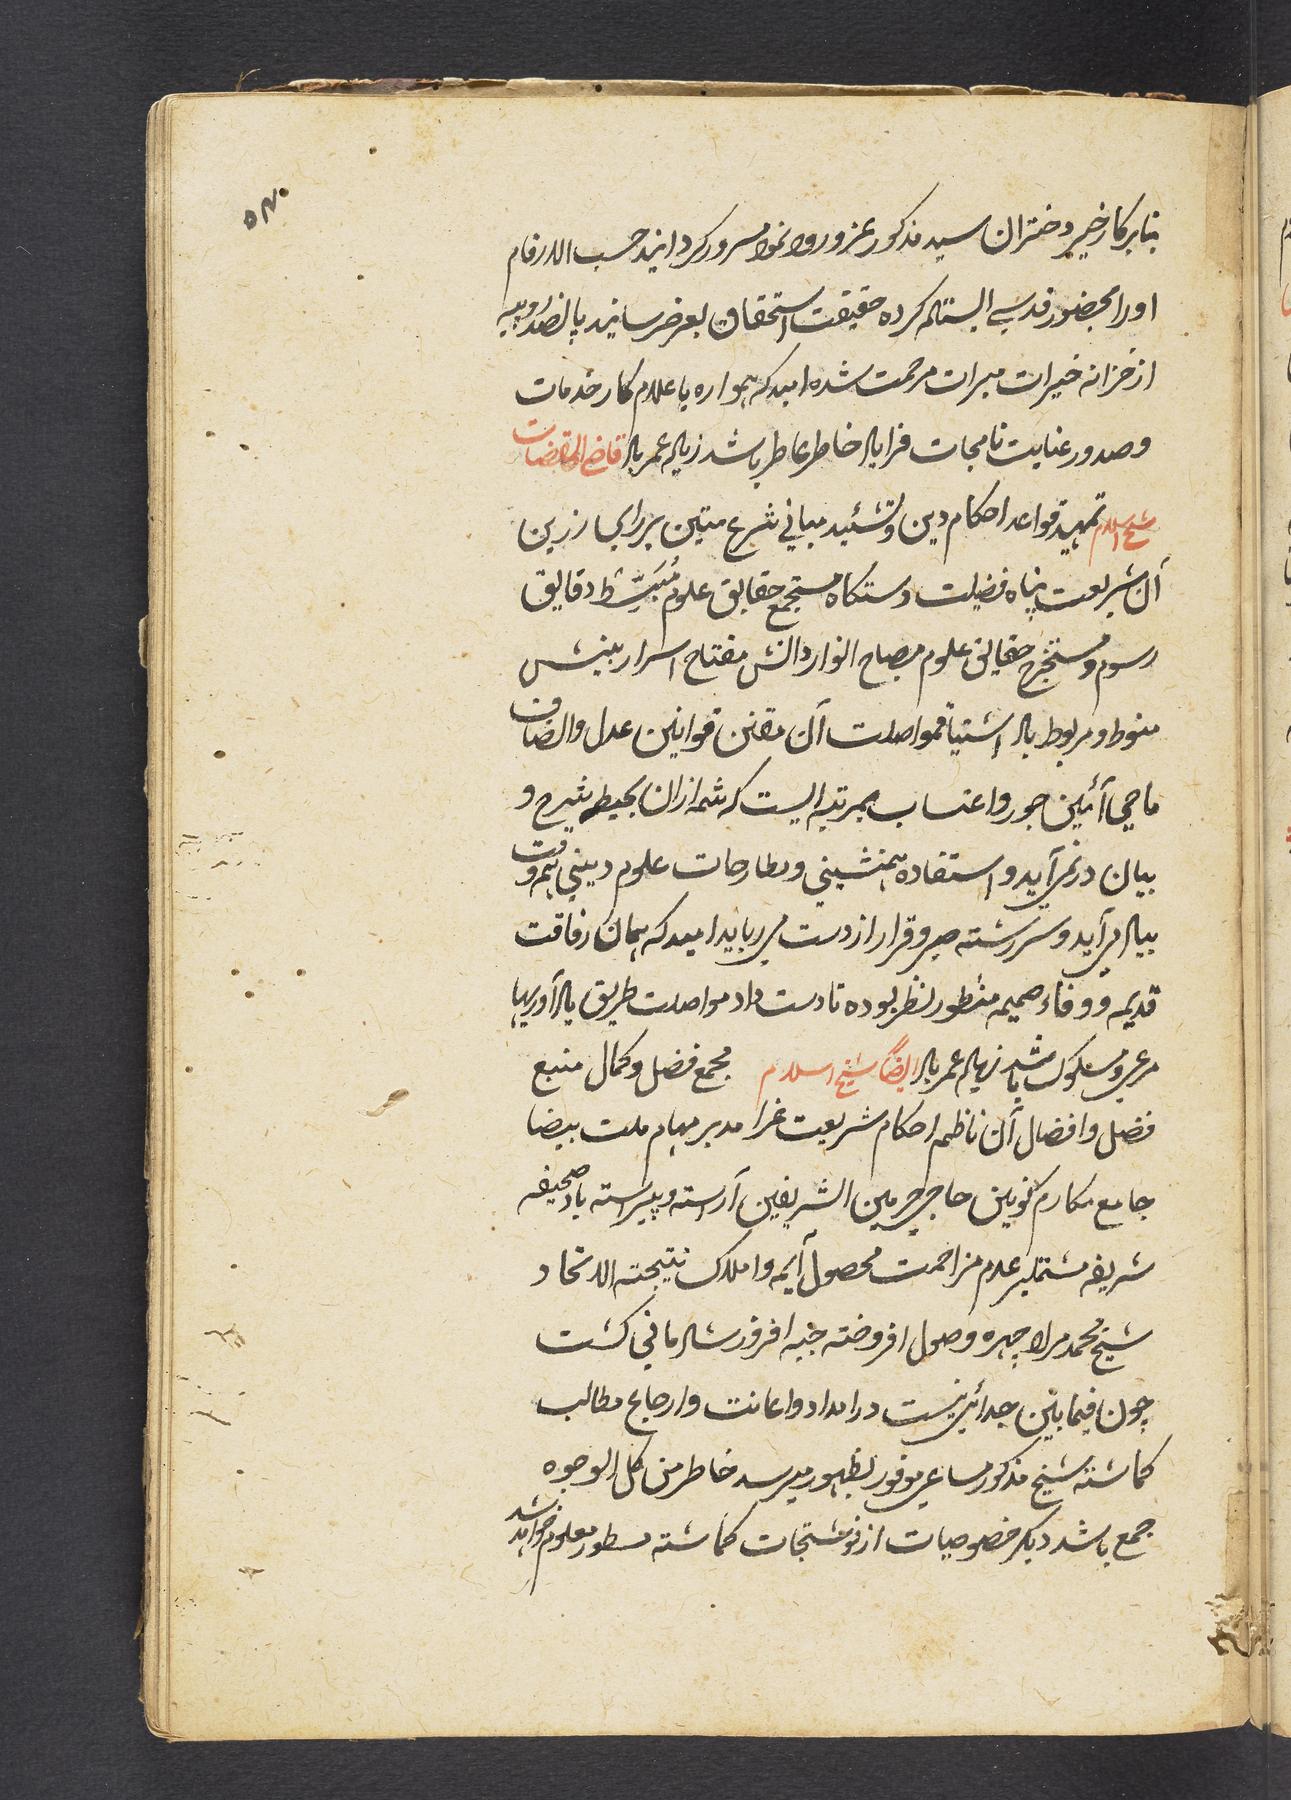 بنابر کار خیر دختران سید مذکور عز ورود نموا مسرور کردانید حسب الارقام
او را بحضور قدسی ایستاله کرده حقیقت استحقاق بعرض رسانید پانصد روپیه
از خزانه خیرات مبرات مرحمت شده امید که همواره باعلام کار خدمات
و صدور عنایت نامجات فزایاد خاطر عاطر باشد زیاله عمر باد قاضی القضات
شیخ اسلام تمهید قواعد احکام دین و تشئید مبانی شرع متین بررای رزین
آن شریعت پناه فضیلت دستکاه مستجمع حقایق علوم مُبَسِّط دقایق
رسوم و مستخرج حقایق علوم مصباح انوار دانش مفتاح اسرار بینش
منوط و مربوط باد اشتیاق مواصلت آن مقنن قوانین عدل وانصاف
ماحی آئین جور واعتساب بمرتبه ایست که شمه ازان بحیطه شرح و
بیان درنمی آید و استفاده همنشینی ومطارحات علوم دینی بهم وقت
بیاد می آید و سررشته صبر وقرار از دست می رباید امید که همان رفاقت
قدیمه و وفاء صمیمه منظور نظر بوده تا دست داد مواصلت طریق یاد آوریها
مرعی و مسلوک باشد زیاله عمر باد ایضاً شیخ اسلام مجمع فضل وکمال منبع
فضل وافضال آن ناظم احکام شریعت غرا مدبر مهام ملت بیضا
جامع مکارم کونین حاجی حرمین الشریفین آراسته و پیراسته باد صحیفه
شریفه مشتملبر عدم مزاحمت محصول آیمه واملاک نتیجته الاتحاد
شیخ محمد مراد چهره وصول افروخته جبه افروز شادمانی کشت
چون فیما بین جدائی نیست در امداد واعانت وارجاع مطالب
کماشته شیخ مذکور مساعی موفور بظهور میرسد خاطر من کل الوجوه
جمع باشد دیکر خصوصیات از نوشتجات کماشته مسطور معلوم خواهد شد